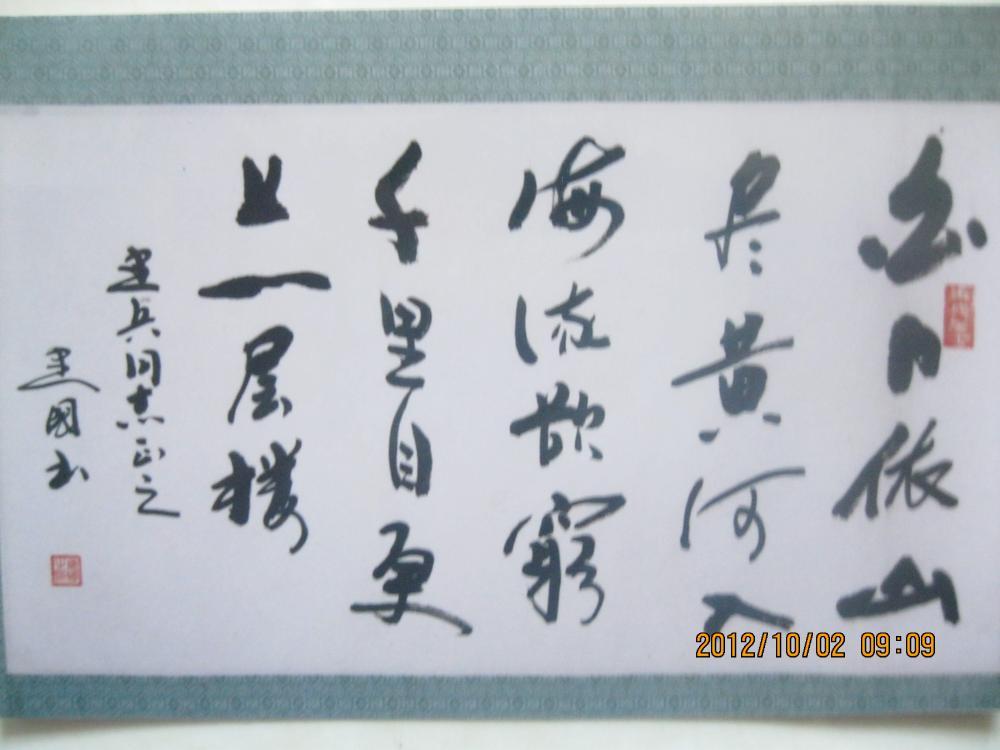 白日依山
尽黄河入
海流欲窮
千里目更
上一层楼
建兵同志正之
建國书
2012/10/02 09:09